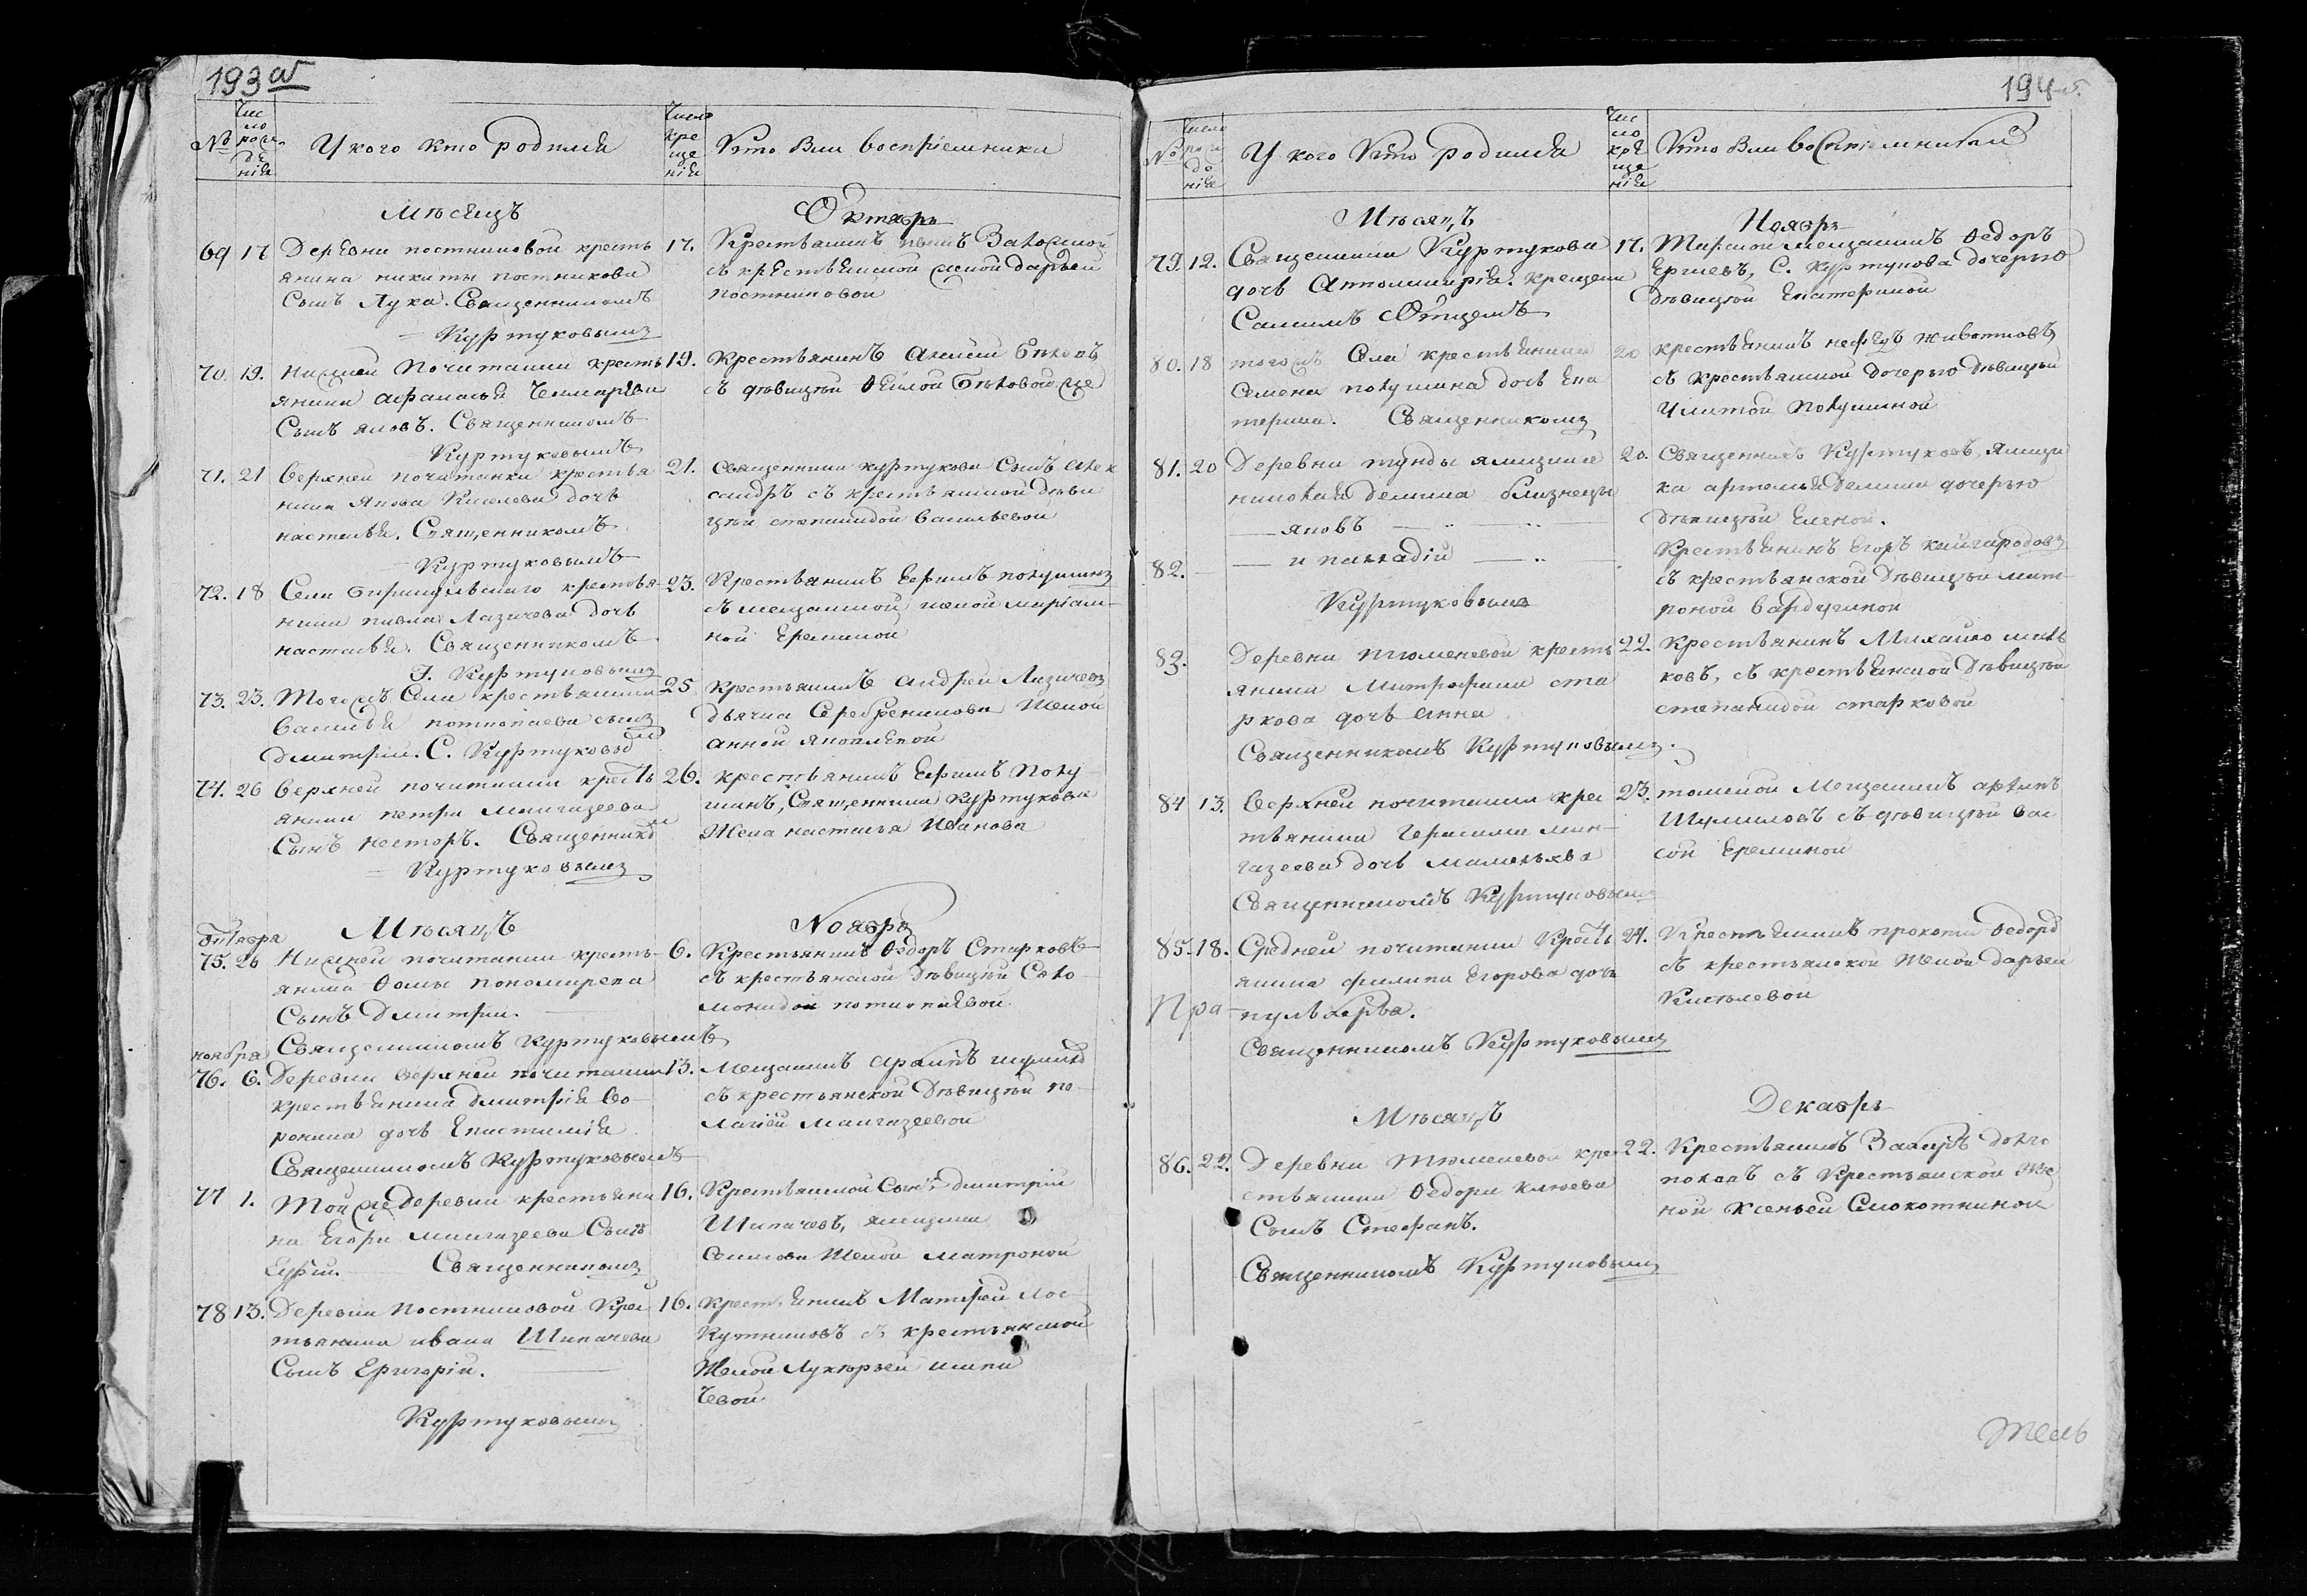 193 об
№
Чис
ло
рож
де
нія
У кого кто родился
Число
кре
ще
нія
Кто были воспріемники
Мѣсяцъ
Октябрь
69 17 Деревни постниковой кресть
янина никиты постникова
Сынъ Лука. Священникомъ
Куртуковымъ
17. Крестьянинъ
съ крестьянской женой дарьей
постниковой
70. 19. нижней Почитанки кресть
янина афанасья
Сынъ яковъ. Священникомъ
Куртуковымъ
19. Крестьянинъ Алексей Бѣковъ
съ дѣвицей Феклой Бѣковой же
71. 21 верхней почитанки крестья
нина Якова Киселева дочь
настасья. Священникомъ
Куртуковымъ
21. священника куртукова Сынъ Алек
сандръ съ крестьянской дѣви
цей степанидой васильевой
72. 18 Села Бирикульскаго крестья-
нина павла Лазичева дочь
настасья. Священникомъ
І. Куртуковымъ
23. Крестьянинъ Ефимъ полушинъ
съ мещанской женой маріам-
ной Ереминой
73. 23. Того жъ Села крестьянина
Василья потпопаева сынъ
Дмитрій. С. Куртуковы
25 крестьянинъ андрей Лазичевъ
дьячка Серебреникова Женой
анной яковлевой
74. 26 верхней почитанки кресть
янина петра мангазеева
Сынъ несторъ. Священнико
Куртуковымъ
26. крестьянинъ Ефимъ Полу
шинъ, Священника Куртукова
Жена настасья Иванова
Мѣсяцъ
Ноябрь
октября
75. 26 Нижней почитанки кресть-
янина Фомы пономарева
Сынъ Дмитрій.
Священникомъ куртуковымъ
6. Крестьянинъ Федоръ Старковъ
съ крестьянской дѣвицей Соло
монидой потпопаевой
ноября
76. 6. Деревни верхней почитанки
крестьянина Дмитрія Во-
ронина дочь Епистимія
Священникомъ Куртуковымъ
13. Мещанинъ архипъ шумило
съ крестьянской дѣвицей пе-
лагіей мангазеевой
77 1. Той же Деревни крестьяни
на Егора мангазеева Сынъ
Священникомъ
16. Крестьянской Сынъ дмитрій
Шипачевъ, ямщика
Женой матроной
78 13. Деревни постниковой Крес
тьянина ивана Шипачева
Сынъ Григорій.
Куртуковымъ
16. Крестьянинъ Матфей Лос-
кутниковъ съ крестьянской
Женой Лукерьей шипа
чевой
194
№
Число
рож
де
нія
У кого Кто родился
Чис
ло
кре
ще
нія
Кто были воспріемники
Мѣсяцъ
Ноябрь
79. 12. Священника Куртукова
дочь Апполинарія. Крещена
Самимъ Отцемъ
17. Мещанинъ Федоръ
С. Куртукова дочерью
дѣвицей Екатериной
80. 18 того жъ Села крестьянина
Семена полушина дочь Ека
терина. Священникомъ
20 крестьянинъ нефедъ животовъ
съ крестьянской дочерью дѣвицей
Улитой Полушиной
81. 20 Деревни тунды ямщика
николая демина близнецы
яковъ
20. Священникъ Куртуковъ, Ямщи
ка артемья Демина дочерью
дѣвицей Еленой.
82. и палладій
Куртуковымъ
Крестьянинъ Егоръ Кайгародовъ
съ крестьянской Дѣвицей мат-
роной вардугиной
83. Деревни тюменевой кресть
янина Митрофана ста
ркова дочь Анна
Священникомъ Куртуковымъ.
22. крестьянинъ Михайло
съ крестьянской дѣвицей
степанидой старковой
84 13. Верхней почитанки крес
тьянина Герасима ман-
газеева дочь маланья
Священникомъ Куртуковымъ
23. томской Мещанинъ архипъ
Шумиловъ съ дѣвицей вас
сой Ереминой
85. 18. Средней почитанки Кресть
янина филипа Егорова дочь
пульхерья.
Священникомъ Куртуковымъ
24. Крестьянинъ прокопій Федоро
съ крестьянской Женой Дарьей
Киселевой
Пра
Мѣсяцъ
Декабрь
86. 22. Деревни Тюменевой кре
стьянина Федора Клюева
Сынъ Стефанъ.
Священникомъ Куртуковымъ
22. Крестьянинъ Захаръ долго
половъ съ Крестьянской Же
ной Ксеньей Смокотниной